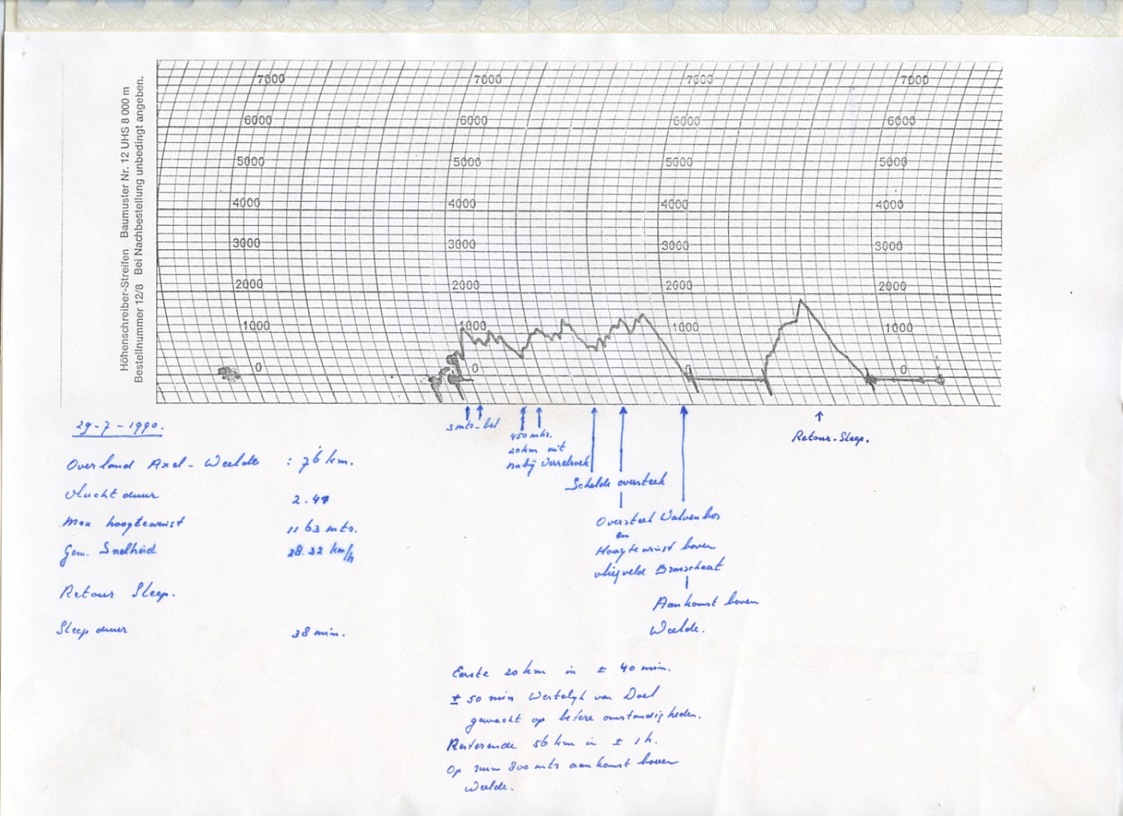 Höhenschreiber-Streifen Baumuster Nr. 12 UHS 8 000 m
Bestellnummer 12/8 Bei Nachbestellung unbedingt angeben.
7000 7000 7000 7000
6000 6000 6000 6000
5000 5000 5000 5000
4000 4000 4000 4000
3000 3000 3000 3000
2000 2000 2000 2000
1000 1000 1000 1000
0 0 0 0
29-7-1990.
Overland Axel-Weelde : 76 km.
Vluchtduur 2.47
Max hoogtewinst 1163 mts.
Gem. Snelheid 28.32 km/h
Retour Sleep.
Sleep duur 38 min.
3 mts. bel
450 mts.
20 km uit
nabij
Schelde oversteek
Oversteek
en
Hoogtewinst boven
vliegveld Brasschaat
Aankomst boven
Weelde.
Retour-Sleep.
Eerste 20 km in ± 40 min.
± 50 min Westelijk van Doel
gewacht op betere omstandigheden.
Resterende 56 km in ± 1 h.
Op ruim 800 mts aankomst boven
Weelde.